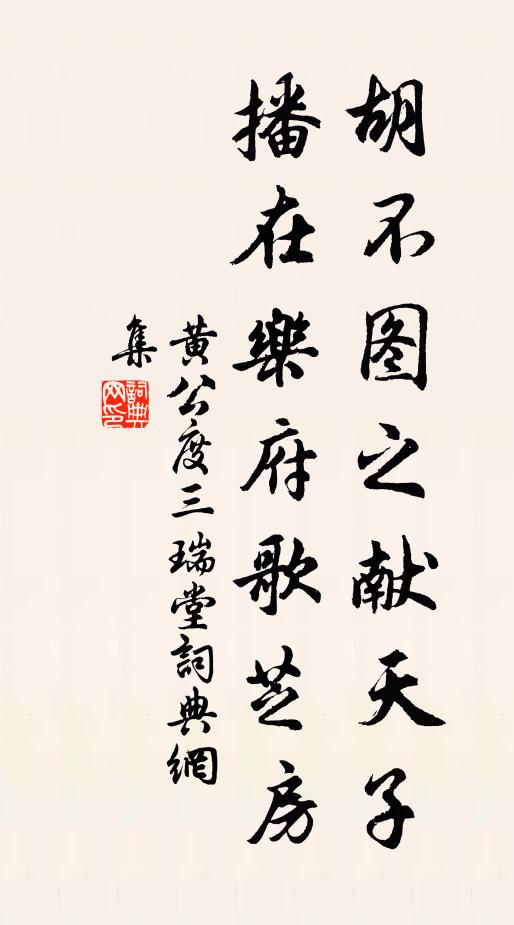 胡不图之献天子
播在樂府歌芝房
黄公度三瑞堂詞典網
集
詞典網印